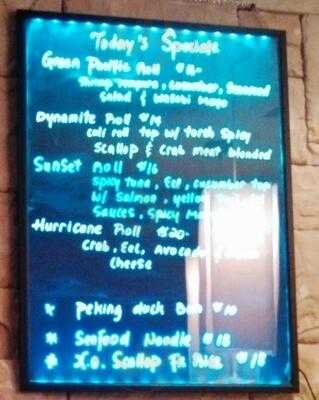 Today's Specials
Green Pacific Roll $18-
Shrimp Tempura, Cucumber, Seaweed
Salad & Wasabi Mayo
Dynamite Roll $14
cali roll top w/ torch spicy
Scallop & Crab meat blended
Sunset Roll $16
spicy tuna, Eel, cucumber top
w/ Salmon, yellow
Sauces, Spicy
Hurricane Roll $20-
Crab, Eel, Avocado &
cheese
* Peking duck Bun $10
* Seafood Noodle $18
* X.O. Scallop Fr Rice $18